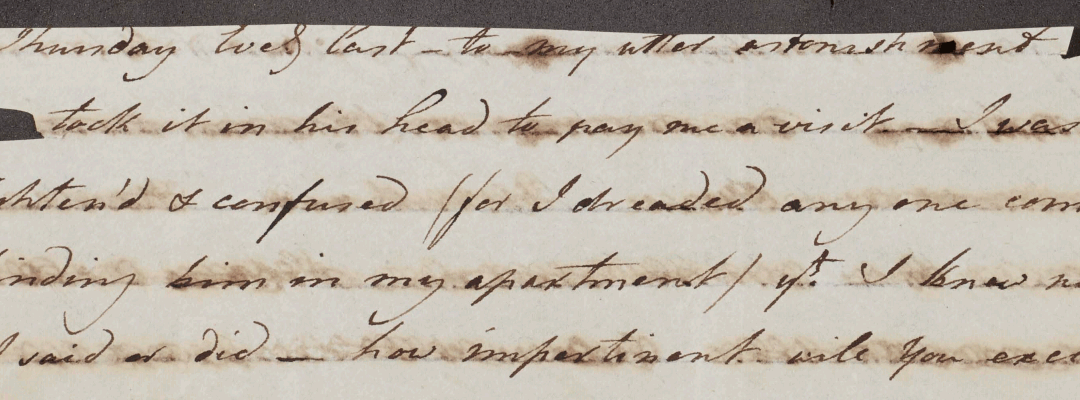 Thursday last - to my utter astonishment
took it in his head to pay me a visit — I was
& confused (for I dreaded any one
him in my apartment) yt. I knew
I said or did — how impertinent will you